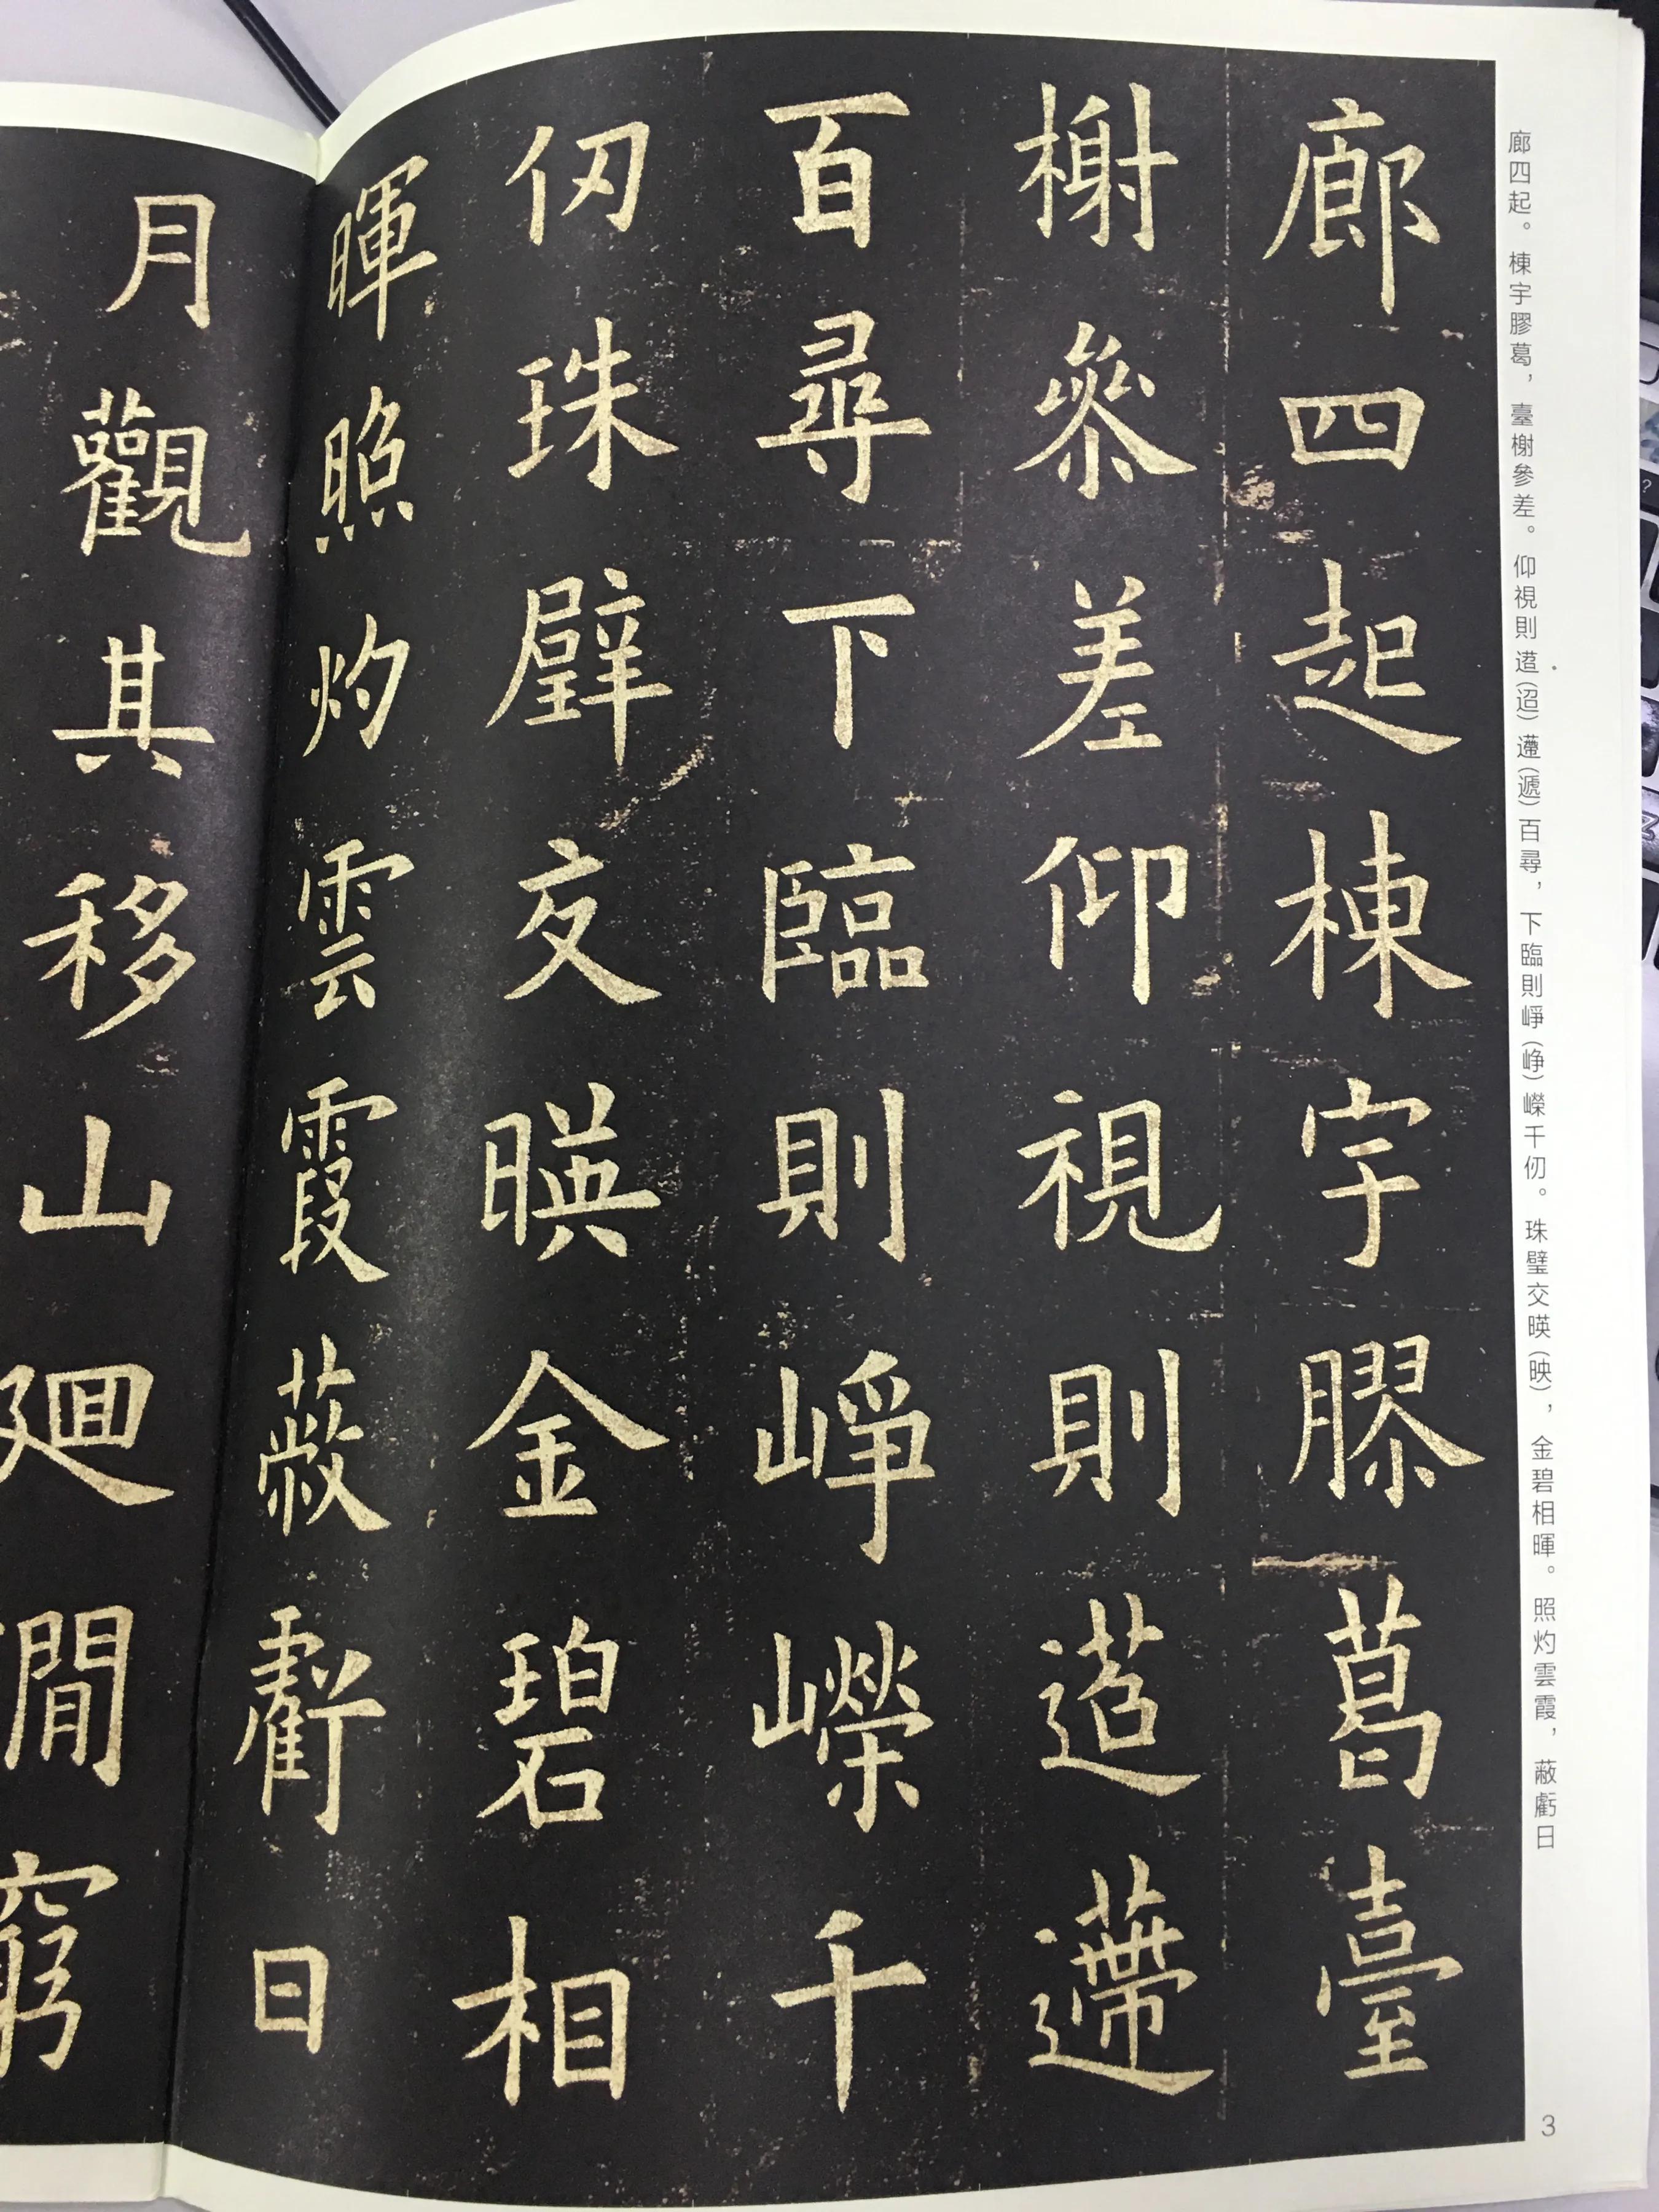 廊四起棟宇膠葛臺
榭參差仰視則迢遰
百尋下臨則崢嶸千
仞珠璧交暎金碧相
暉照灼雲霞蔽虧日
月觀其移山廻澗窮
廊四起。棟宇膠葛，臺榭參差。仰視則(迢)(遞)百尋，下臨則崢(峥)嶸千仞。珠璧交暎(映)，金碧相暉。照灼雲霞，蔽虧日
3